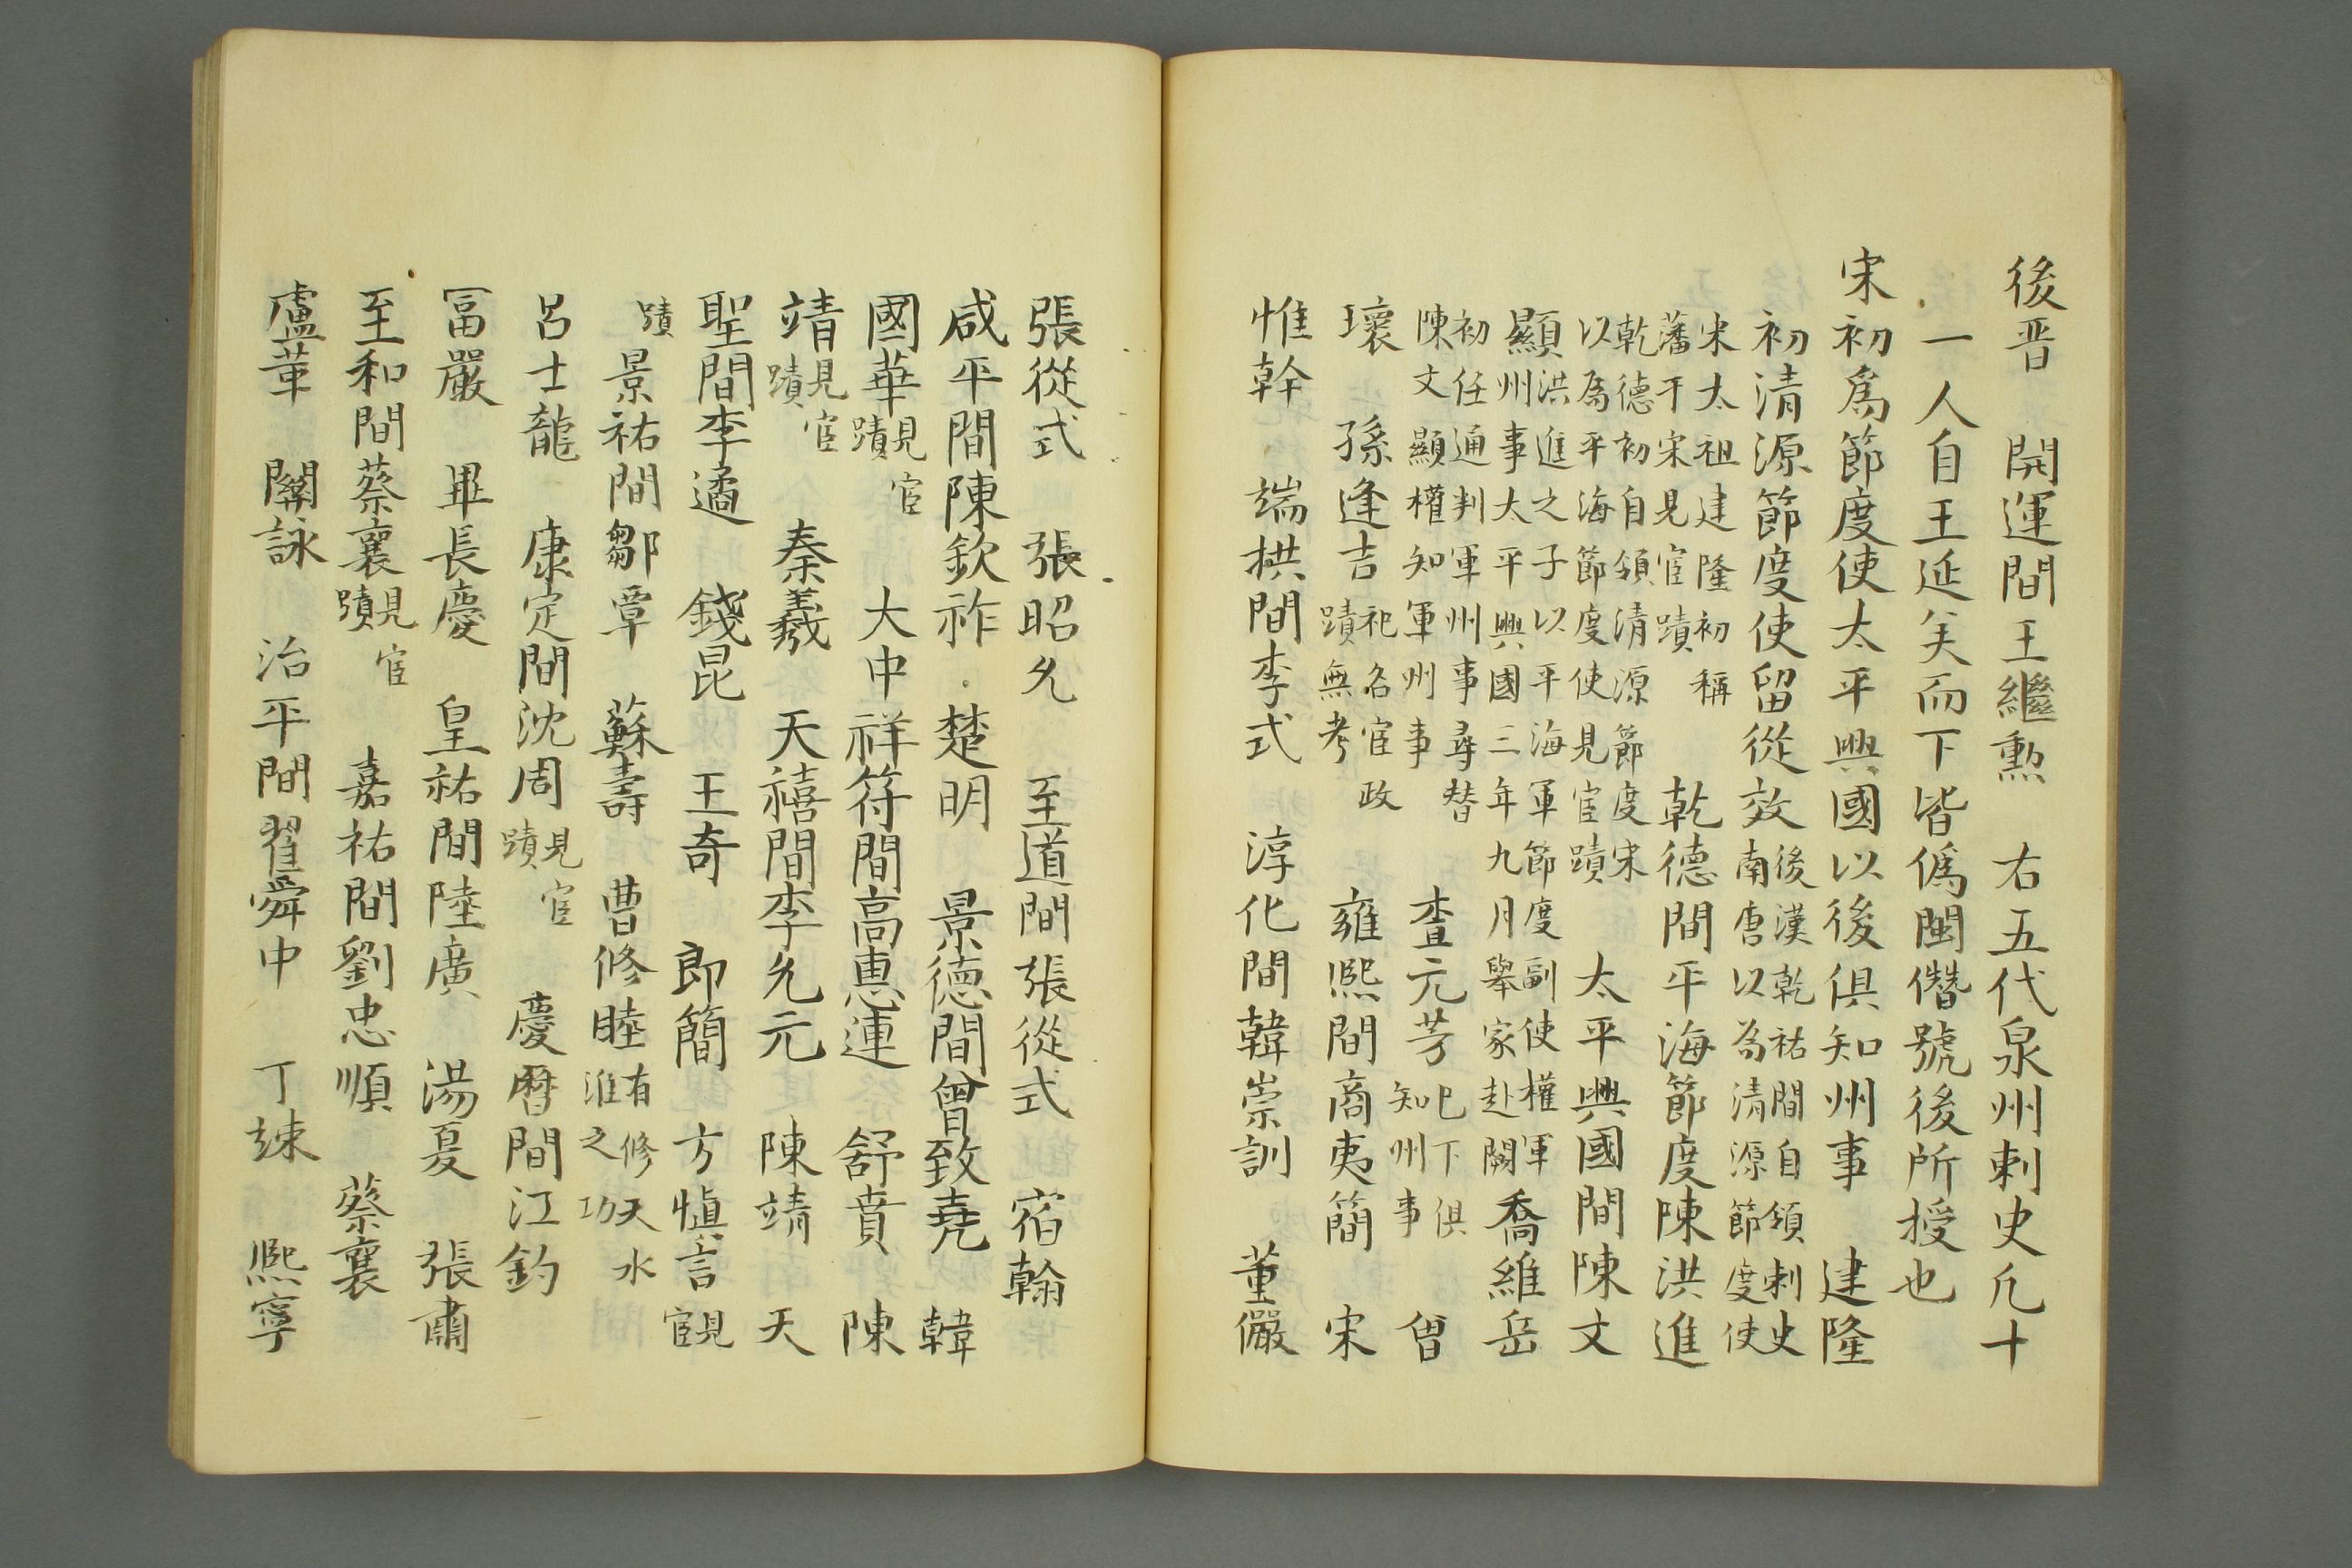 後晋　開運間王繼勲　右五代泉州刺史凢十
一人自王延矣而下皆僞閩僭號後所授也
宋初爲節度使太平興國以後俱知州事　建隆
初清源節度使留從效後漢乾祐間自領刺史南唐以為清源節度使
宋太祖建隆初稱藩于宋見宦蹟　乾德間平海節度陳洪進
乾德初自領清源節度宋以爲平海節度使見宦蹟　太平興國間陳文
顯洪進之子以平海軍節度副使權軍州事太平興國三年九月舉家赴闕　喬維岳
初任通判軍州事尋替陳文顯權知軍州事　查元芳已下俱知州事　曾
瓌　孫逢吉祀名宦政蹟無考　雍熙間商夷簡　宋
惟幹　端拱間李式　淳化間韓崇訓　董儼
張從式　張昭允　至道間張從式　宿翰
咸平間陳欽祚　楚明　景德間曾致堯　韓
國華見宦蹟　大中祥符間高惠連　舒賁　陳
靖見宦蹟　秦羲　天禧間李允元　陳靖　天
聖間李遹　錢昆　王奇　郎簡　方慎言見宦
蹟　景祐間鄒覃　蘇壽　曹修睦有修天水淮之功
呂士龍　康定間沈周見宦蹟　慶曆間江鈞
冨嚴　畢長慶　皇祐間陸廣　湯夏　張肅
至和間蔡襄見宦蹟　嘉祐間劉忠順　蔡襄
盧革　關詠　治平間翟舜中　丁竦　熙寧